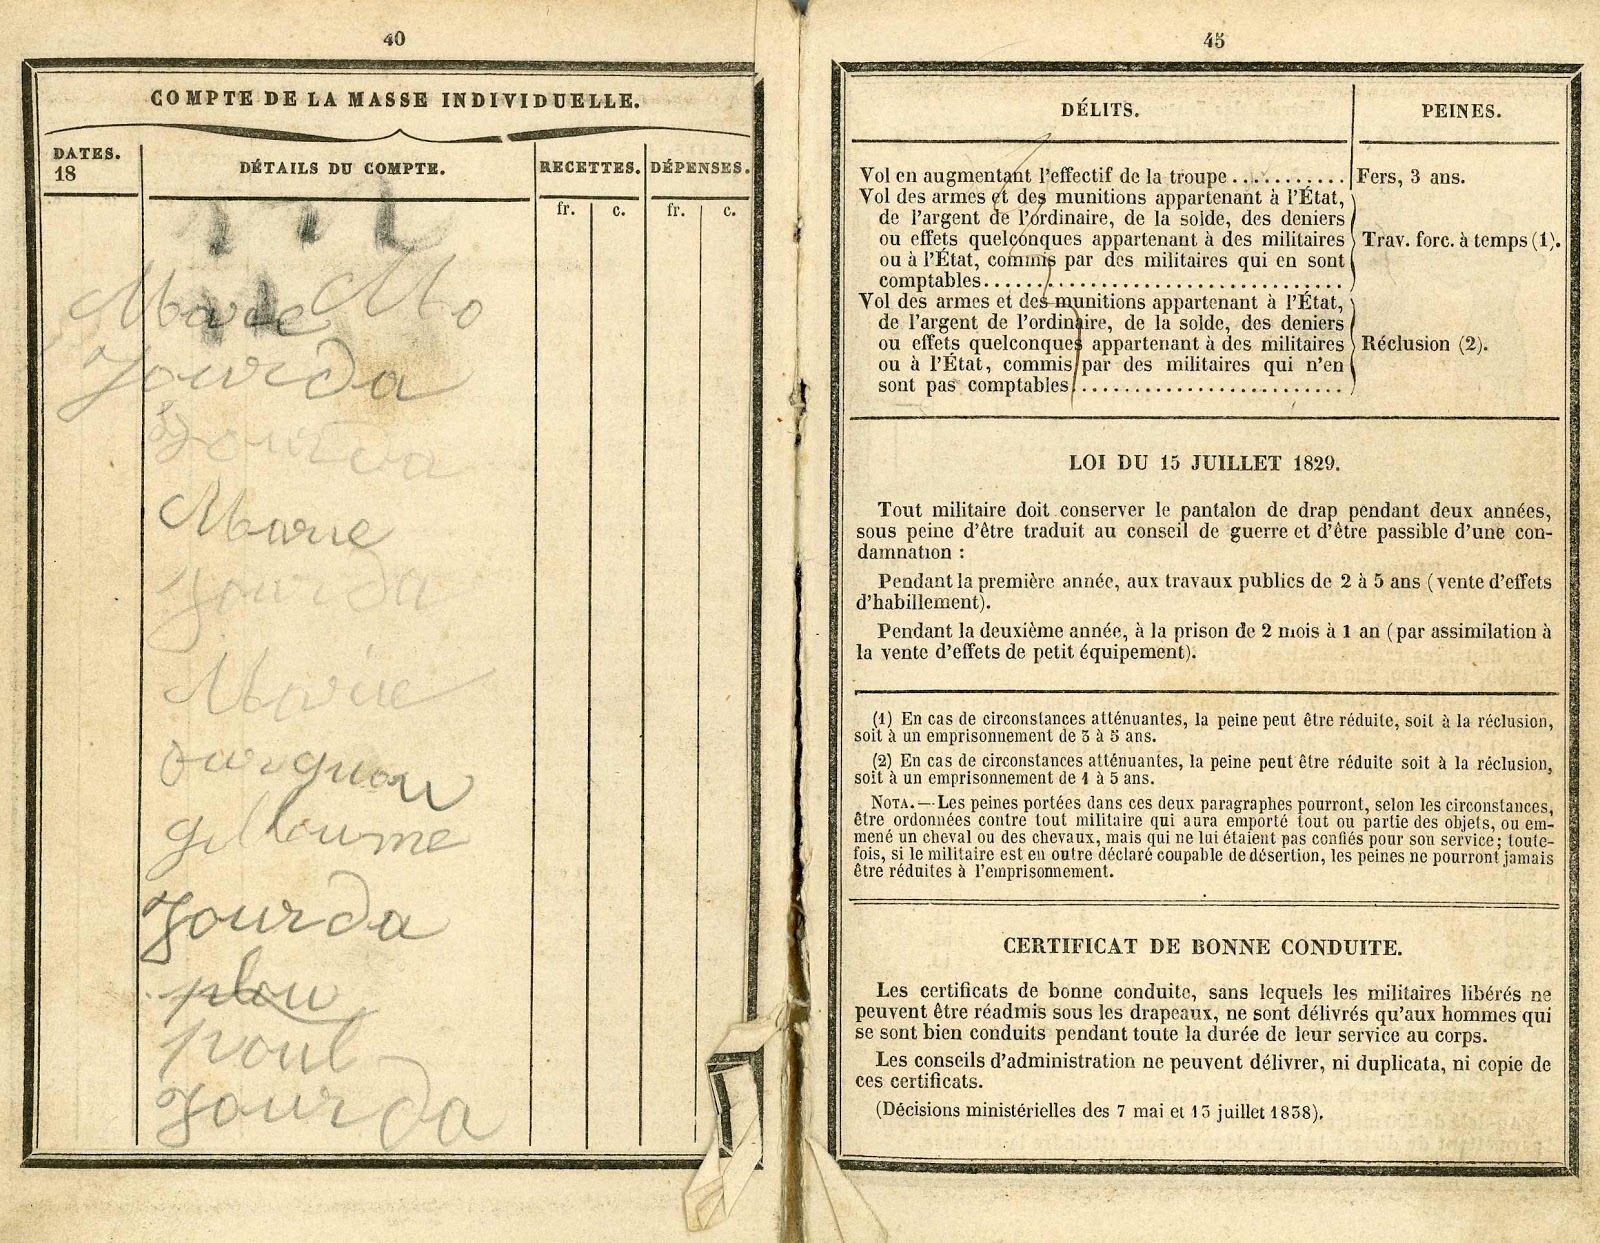 40
COMPTE DE LA MASSE INDIVIDUELLE.
DATES.
18
DÉTAILS DU COMPTE.
RECETTES.
DÉPENSES.
fr.
c.
fr.
c.
Marie Mo
Jourda
Jourda
Marie
Jourda
Marie
Jourda
plou
poul
Jourda
45
DÉLITS.
PEINES.
Vol en augmentant l'effectif de la troupe ........... Fers, 3 ans.
Vol des armes et des munitions appartenant à l'État,
de l'argent de l'ordinaire, de la solde, des deniers
ou effets quelconques appartenant à des militaires Trav. forc. à temps (1).
ou à l'État, commis par des militaires qui en sont
comptables..................................
Vol des armes et des munitions appartenant à l'État,
de l'argent de l'ordinaire, de la solde, des deniers
ou effets quelconques appartenant à des militaires Réclusion (2).
ou à l'État, commis par des militaires qui n'en
sont pas comptables.........................
LOI DU 15 JUILLET 1829.
Tout militaire doit conserver le pantalon de drap pendant deux années,
sous peine d'être traduit au conseil de guerre et d'être passible d'une con-
damnation :
Pendant la première année, aux travaux publics de 2 à 5 ans (vente d'effets
d'habillement).
Pendant la deuxième année, à la prison de 2 mois à 1 an (par assimilation à
la vente d'effets de petit équipement).
(1) En cas de circonstances atténuantes, la peine peut être réduite, soit à la réclusion,
soit à un emprisonnement de 3 à 5 ans.
(2) En cas de circonstances atténuantes, la peine peut être réduite soit à la réclusion,
soit à un emprisonnement de 1 à 5 ans.
NOTA.—Les peines portées dans ces deux paragraphes pourront, selon les circonstances,
être ordonnées contre tout militaire qui aura emporté tout ou partie des objets, ou em-
mené un cheval ou des chevaux, mais qui ne lui étaient pas confiés pour son service; toute-
fois, si le militaire est en outre déclaré coupable de désertion, les peines ne pourront jamais
être réduites à l'emprisonnement.
CERTIFICAT DE BONNE CONDUITE.
Les certificats de bonne conduite, sans lequels les militaires libérés ne
peuvent être réadmis sous les drapeaux, ne sont délivrés qu'aux hommes qui
se sont bien conduits pendant toute la durée de leur service au corps.
Les conseils d'administration ne peuvent délivrer, ni duplicata, ni copie de
ces certificats.
(Décisions ministérielles des 7 mai et 13 juillet 1838).